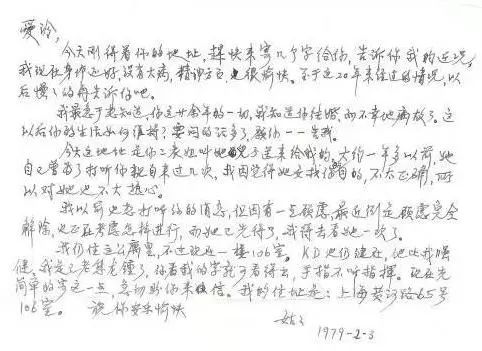 爱玲,
今天刚得着你的地址,赶快来写几个字给你,告诉你我的近况。
我现在身体还好,没有大病,精神方面也很愉快。至于这20年来经过的情况,以
后慢慢的再告诉你吧。
我最急于想知道,你这廿余年的一切,我知道你结婚,而不幸他病故了。这
以后你的生活如何维持?要问的话多了,盼你一一告我。
今天这地址是你二表姐叫她儿子送来给我的。大约一年多以前,她
自己曾为了打听你就自来过几次,我因觉得她要找你的目的,不太正确,所
以对她也不大热心。
我以前也想打听你的消息,但因有一定顾虑,最近倒是顾虑完全
解除,也正在考虑怎样进行,而她已先得了,我得去看她一次了。
我仍住这公寓里,不过现在一楼106室。KD也仍健在,他比我强
健。我是已老态龙钟了,你看我的字就可看得出,手指不听指挥。现在先
简单的写这一点,急切盼你来信。我的住址是:上海黄河路65号
106室。 祝你安乐愉快
姑姑
1979-2-3